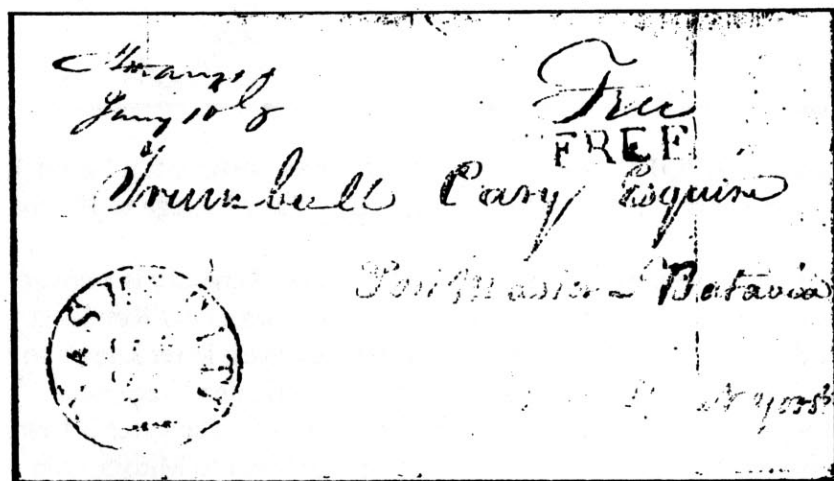 Jany 10
Free
FREE
Trumbull Cary Esquire
Post Master – Batavia
N York
WASH CITY